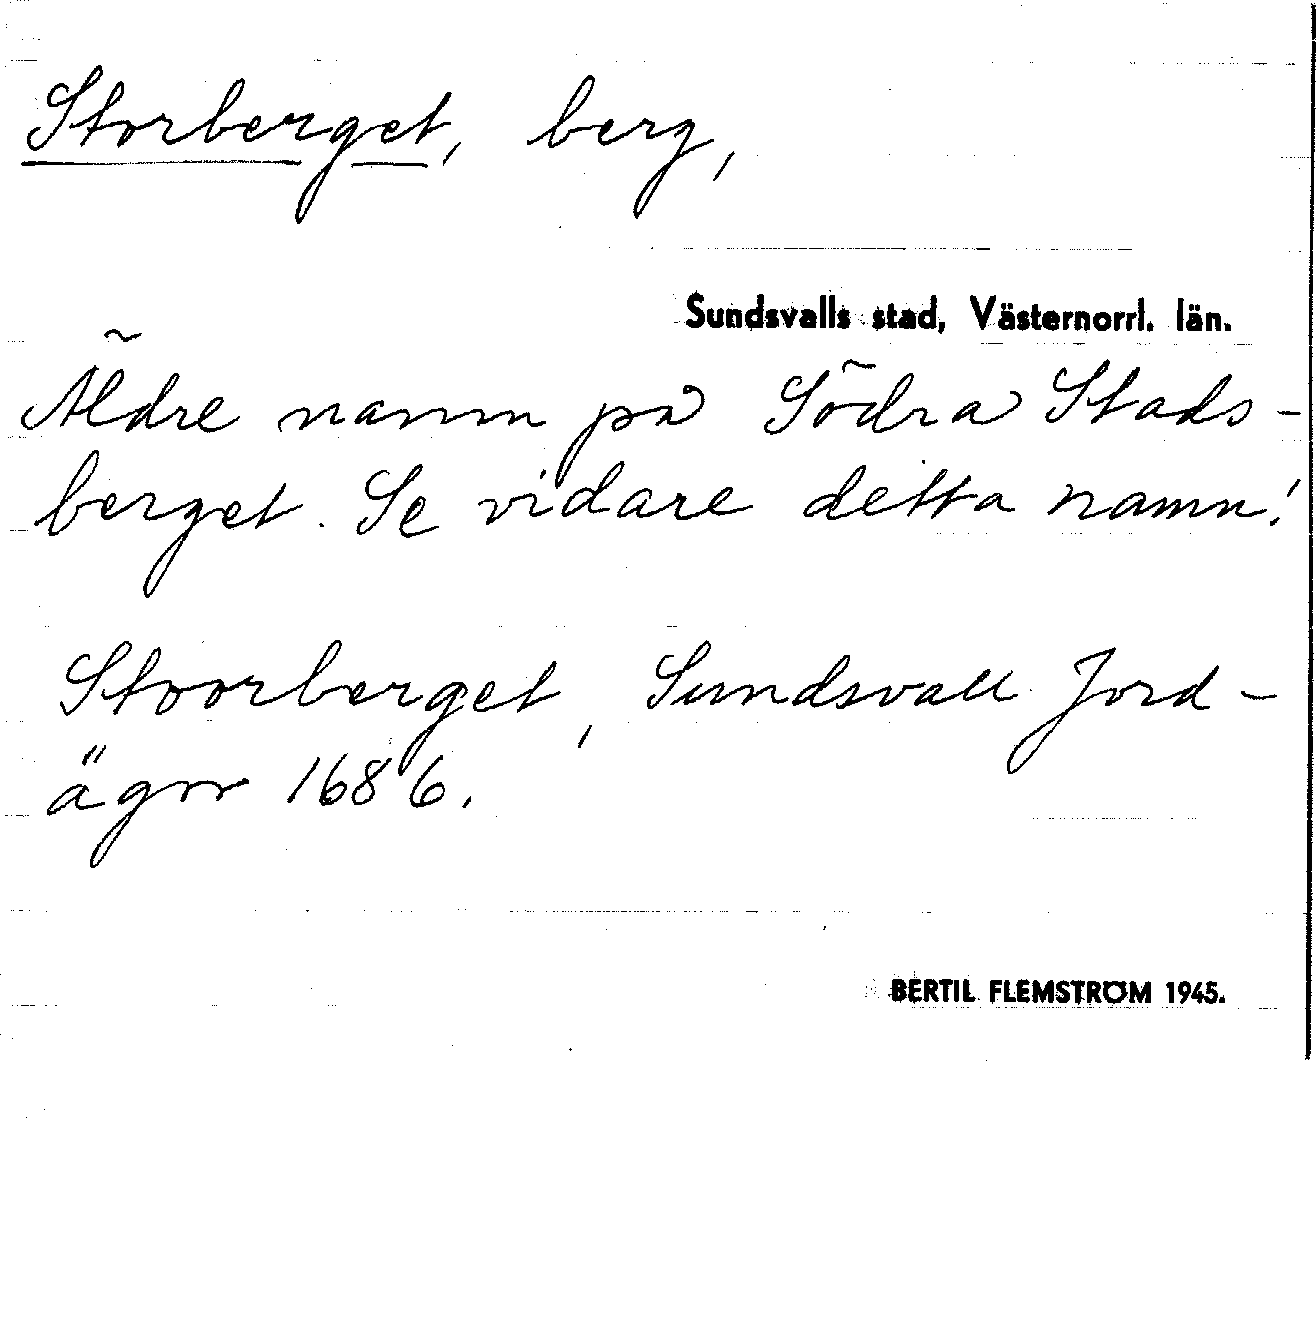 Storberget, berg,
Sundsvalls stad, Västernorrl. län.
Äldre namn på Södra Stads-
berget. Se vidare detta namn!
Stoorberget, Sundsvall Jord-
ägor 1686.
BERTIL FLEMSTRÖM 1945.